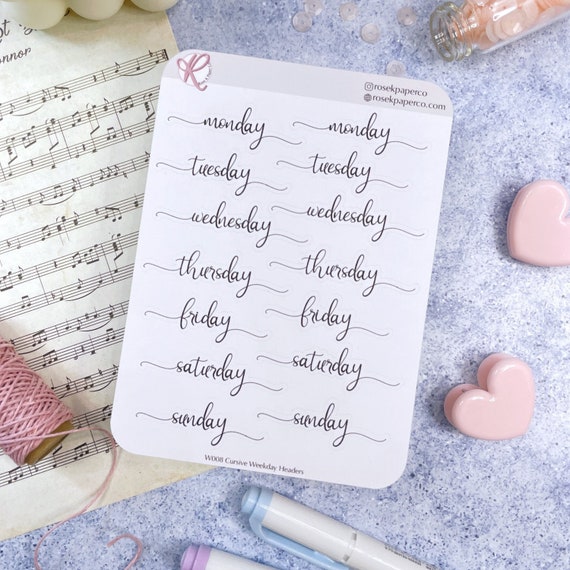 onnor
R
rosekpaperco
rosekpaperco.com
monday monday
tuesday tuesday
wednesday wednesday
thursday thursday
friday friday
saturday saturday
sunday sunday
W008 Cursive Weekday Headers